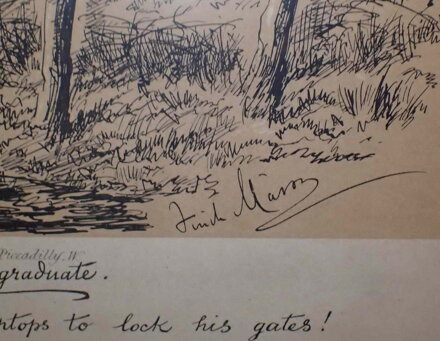 Finch Mason
Piccadilly, W.
graduate.
ptops to lock his gates!